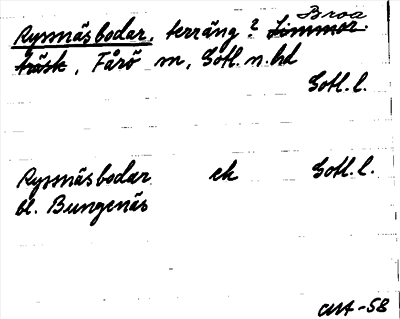 Broa
Ryssnäsbodar, terräng? Limmor-
träsk, Fårö sn, Gotl. n. hd
Gotl. l.
Ryssnäsbodar ek Gotl. l.
bl. Bungenäs